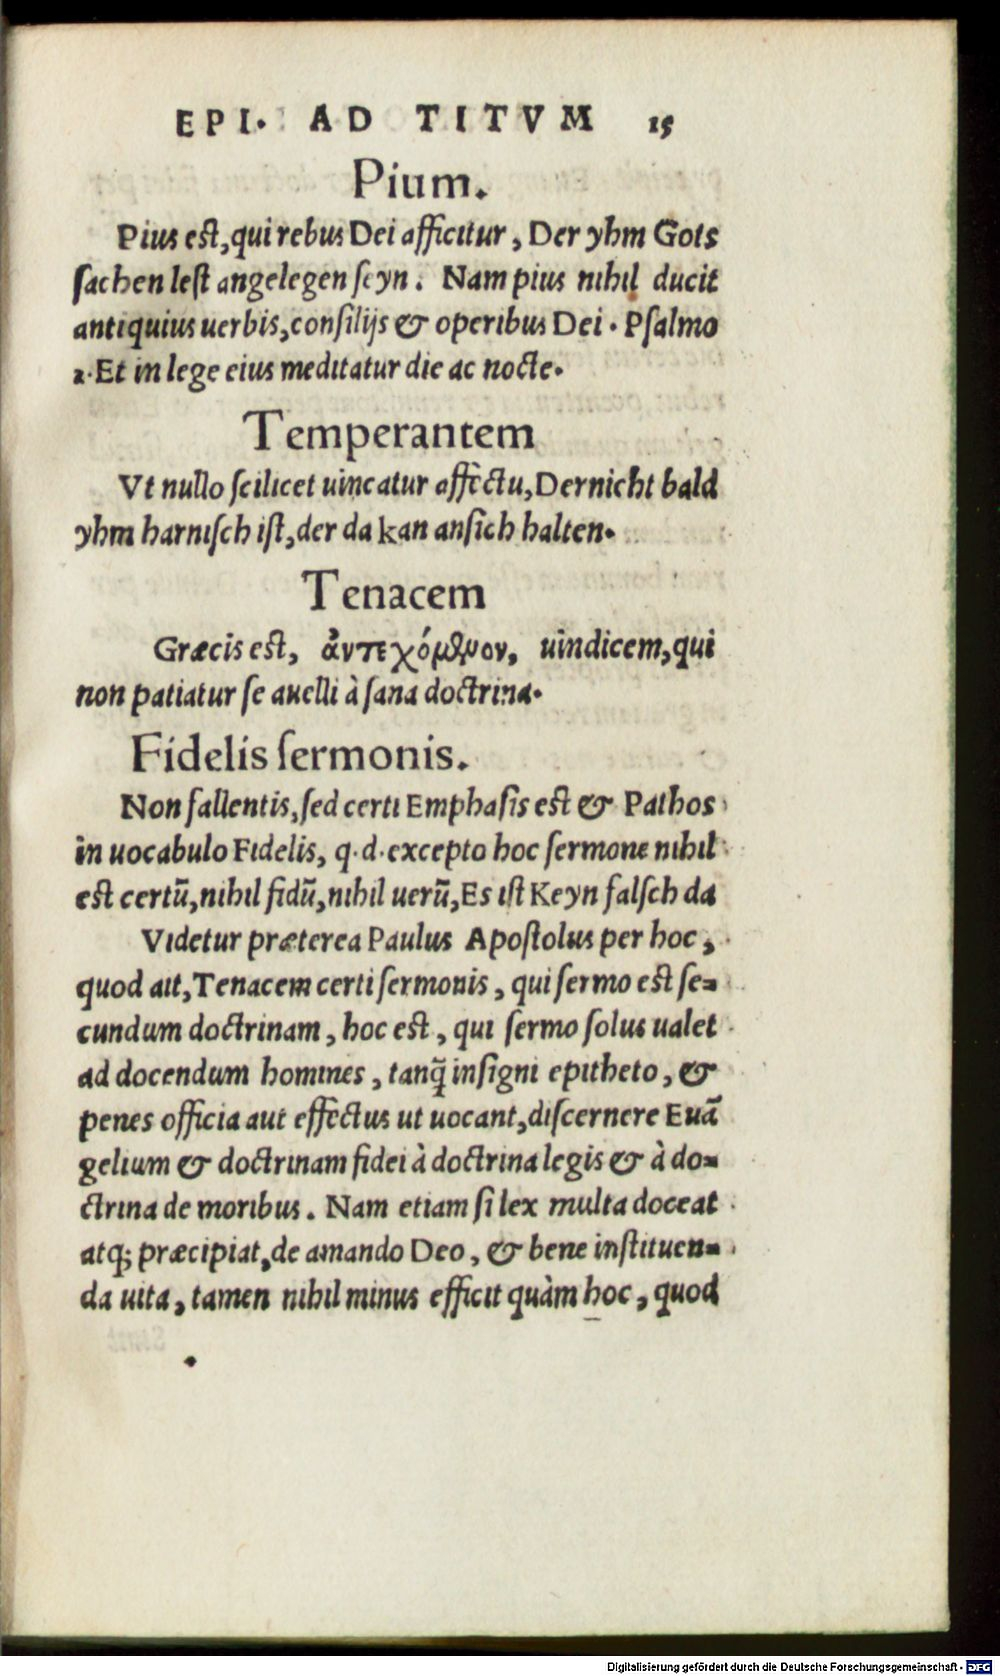 EPI. AD TITVM 15
Pium.
Pius est, qui rebus Dei afficitur, Der yhm Gots
sachen lest angelegen seyn. Nam pius nihil ducit
antiquius uerbis, consilijs & operibus Dei. Psalmo
1. Et in lege eius meditatur die ac nocte.
Temperantem
Vt nullo scilicet uincatur affectu, Der nicht bald
yhm harnisch ist, der da kan ansich halten.
Tenacem
Græcis est, ἀντεχόμενον, uindicem, qui
non patiatur se auelli à sana doctrina.
Fidelis sermonis.
Non fallentis, sed certi Emphasis est & Pathos
in uocabulo Fidelis, q.d. excepto hoc sermone nihil
est certū, nihil fidū, nihil uerū, Es ist Keyn falsch da
Videtur præterea Paulus Apostolus per hoc,
quod ait, Tenacem certi sermonis, qui sermo est se=
cundum doctrinam, hoc est, qui sermo solus ualet
ad docendum homines, tanq̃ insigni epitheto, &
penes officia aut effectus ut uocant, discernere Euā
gelium & doctrinam fidei à doctrina legis & à do=
ctrina de moribus. Nam etiam si lex multa doceat
atq; præcipiat, de amando Deo, & bene instituen=
da uita, tamen nihil minus efficit quàm hoc, quod
Digitalisierung gefördert durch die Deutsche Forschungsgemeinschaft - DFG